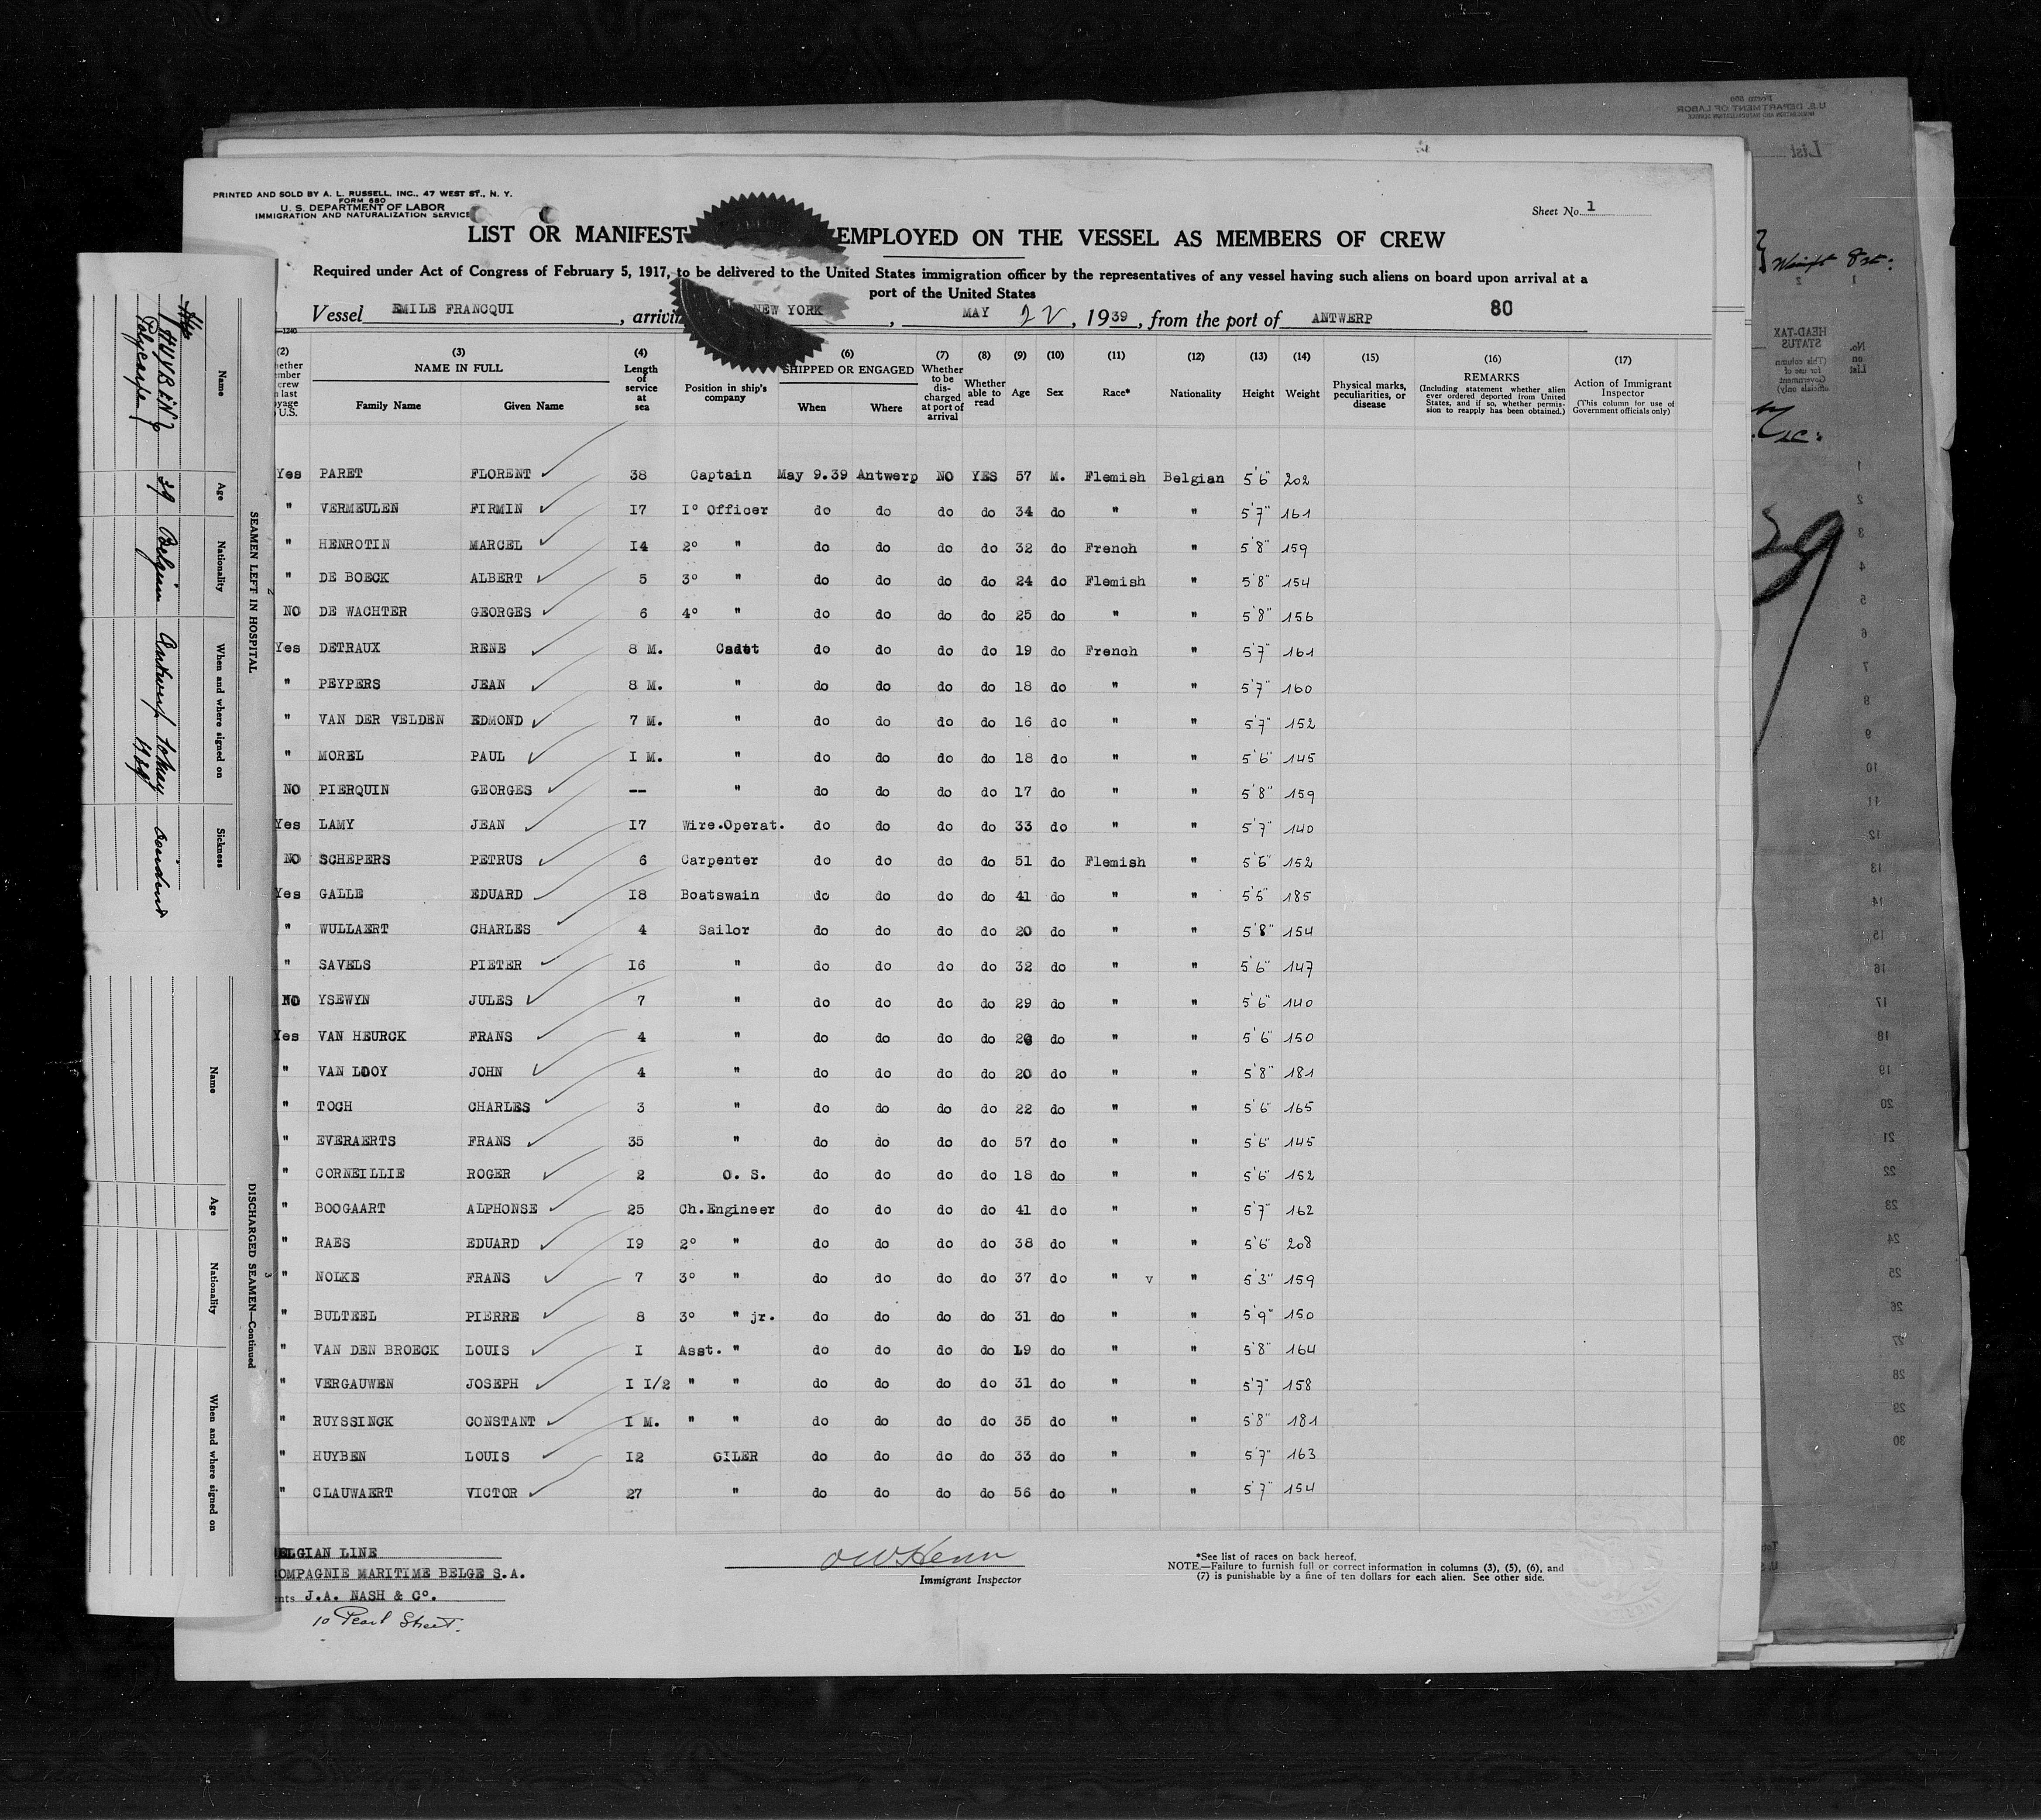 PRINTED AND SOLD BY A. L. RUSSELL, INC., 47 WEST ST., N. Y.
FORM 680
U. S. DEPARTMENT OF LABOR
IMMIGRATION AND NATURALIZATION SERVICE
Sheet No. 1
LIST OR MANIFEST EMPLOYED ON THE VESSEL AS MEMBERS OF CREW
Required under Act of Congress of February 5, 1917, to be delivered to the United States immigration officer by the representatives of any vessel having such aliens on board upon arrival at a
port of the United States
80
Vessel EMILE FRANCQUI, arrivin NEW YORK, MAY 22, 1939, from the port of ANTWERP
(2) (3) (4) (6) (7) (8) (9) (10) (11) (12) (13) (14) (15) (16) (17)
NAME IN FULL
Family Name Given Name
Length of service at sea
Position in ship's company
SHIPPED OR ENGAGED
When Where
Whether to be discharged at port of arrival
Whether able to read
Age Sex Race* Nationality Height Weight
Physical marks, peculiarities, or disease
REMARKS
(Including statement whether alien ever ordered deported from United States, and if so, whether permission to reapply has been obtained.)
Action of Immigrant Inspector
(This column for use of Government officials only)
Yes PARET FLORENT 38 Captain May 9.39 Antwerp NO YES 57 M. Flemish Belgian 5'6" 202
" VERMEULEN FIRMIN 17 I° Officer do do do do 34 do " " 5'7" 161
" HENROTIN MARCEL 14 2° " do do do do 32 do French " 5'8" 159
" DE BOECK ALBERT 5 3° " do do do do 24 do Flemish " 5'8" 154
NO DE WACHTER GEORGES 6 4° " do do do do 25 do " " 5'8" 156
Yes DETRAUX RENE 8 M. Cadet do do do do 19 do French " 5'7" 161
" PEYPERS JEAN 8 M. " do do do do 18 do " " 5'7" 160
" VAN DER VELDEN EDMOND 7 M. " do do do do 16 do " " 5'7" 152
" MOREL PAUL I M. " do do do do 18 do " " 5'6" 145
NO PIERQUIN GEORGES -- " do do do do 17 do " " 5'8" 159
Yes LAMY JEAN 17 Wire.Operat. do do do do 33 do " " 5'7" 140
NO SCHEPERS PETRUS 6 Carpenter do do do do 51 do Flemish " 5'6" 152
Yes GALLE EDUARD 18 Boatswain do do do do 41 do " " 5'5" 185
" WULLAERT CHARLES 4 Sailor do do do do 20 do " " 5'8" 154
" SAVELS PIETER 16 " do do do do 32 do " " 5'6" 147
NO YSEWYN JULES 7 " do do do do 29 do " " 5'6" 140
Yes VAN HEURCK FRANS 4 " do do do do do " " 5'6" 150
" VAN LOOY JOHN 4 " do do do do 20 do " " 5'8" 181
" TOCH CHARLES 3 " do do do do 22 do " " 5'6" 165
" EVERAERTS FRANS 35 " do do do do 57 do " " 5'6" 145
" CORNEILLIE ROGER 2 O. S. do do do do 18 do " " 5'6" 152
" BOOGAART ALPHONSE 25 Ch.Engineer do do do do 41 do " " 5'7" 162
" RAES EDUARD 19 2° " do do do do 38 do " " 5'6" 208
" NOLKE FRANS 7 3° " do do do do 37 do " v " 5'3" 159
" BULTEEL PIERRE 8 3° " jr. do do do do 31 do " " 5'9" 150
" VAN DEN BROECK LOUIS I Asst. " do do do do 19 do " " 5'8" 164
" VERGAUWEN JOSEPH I I/2 " " do do do do 31 do " " 5'7" 158
" RUYSSINCK CONSTANT I M. " " do do do do 35 do " " 5'8" 181
" HUYBEN LOUIS 12 OILER do do do do 33 do " " 5'7" 163
" CLAUWAERT VICTOR 27 " do do do do 56 do " " 5'7" 154
BELGIAN LINE
COMPAGNIE MARITIME BELGE S.A.
J.A. NASH & C°.
10 Pearl Street.
Immigrant Inspector
*See list of races on back hereof.
NOTE.—Failure to furnish full or correct information in columns (3), (5), (6), and
(7) is punishable by a fine of ten dollars for each alien. See other side.
SEAMEN LEFT IN HOSPITAL
Name Age Nationality When and where signed on Sickness
HUYBEN Polycarpe 39 Belgian Antwerp 1939 accident
DISCHARGED SEAMEN—Continued
Name Age Nationality When and where signed on
U.S. DEPARTMENT OF LABOR
IMMIGRATION AND NATURALIZATION SERVICE
List
HEAD-TAX STATUS
(This column for use of Government officials only)
No. on List